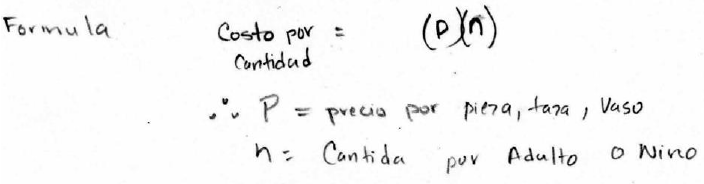 Formula Costo por = (P)(n)
Cantidad
∴ P = precio por pieza, taza, Vaso
n = Cantida por Adulto o Nino